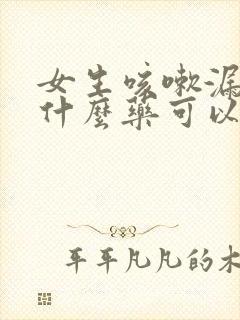 女生咳嗽漏
什麼藥可以
平平凡凡的木